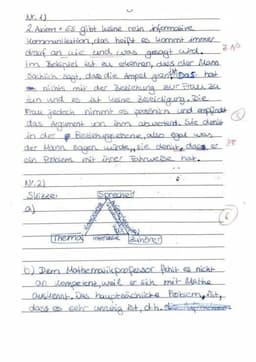 Nr. 1)
2. Axiom → Es gibt keine rein informative
Kommunikation, das heißt es kommt immer
drauf an wie und was gesagt wird.
Im Beispiel ist zu erkennen, dass der Mann
sachlich sagt, dass die Ampel grün ist. Das hat
nichts mit der Beziehung zur Frau zu
tun und es ist keine Beleidigung. Die
Frau jedoch nimmt es persönlich und empfindet
das Argument von ihm abwertend. Sie denkt
in der Beziehungsebene, also egal was
der Mann sagen würde, sie denkt, dass er
ein Problem mit ihrer Fahrweise hat.
Nr. 2)
Skizze:
a)
Sprecher
Thema
Zuhörer
b) Dem Mathematikprofessor fehlt es nicht
an Kompetenz, weil er sich mit Mathe
auskennt. Das hauptsächliche Problem ist,
dass es sehr unruhig ist, d.h.